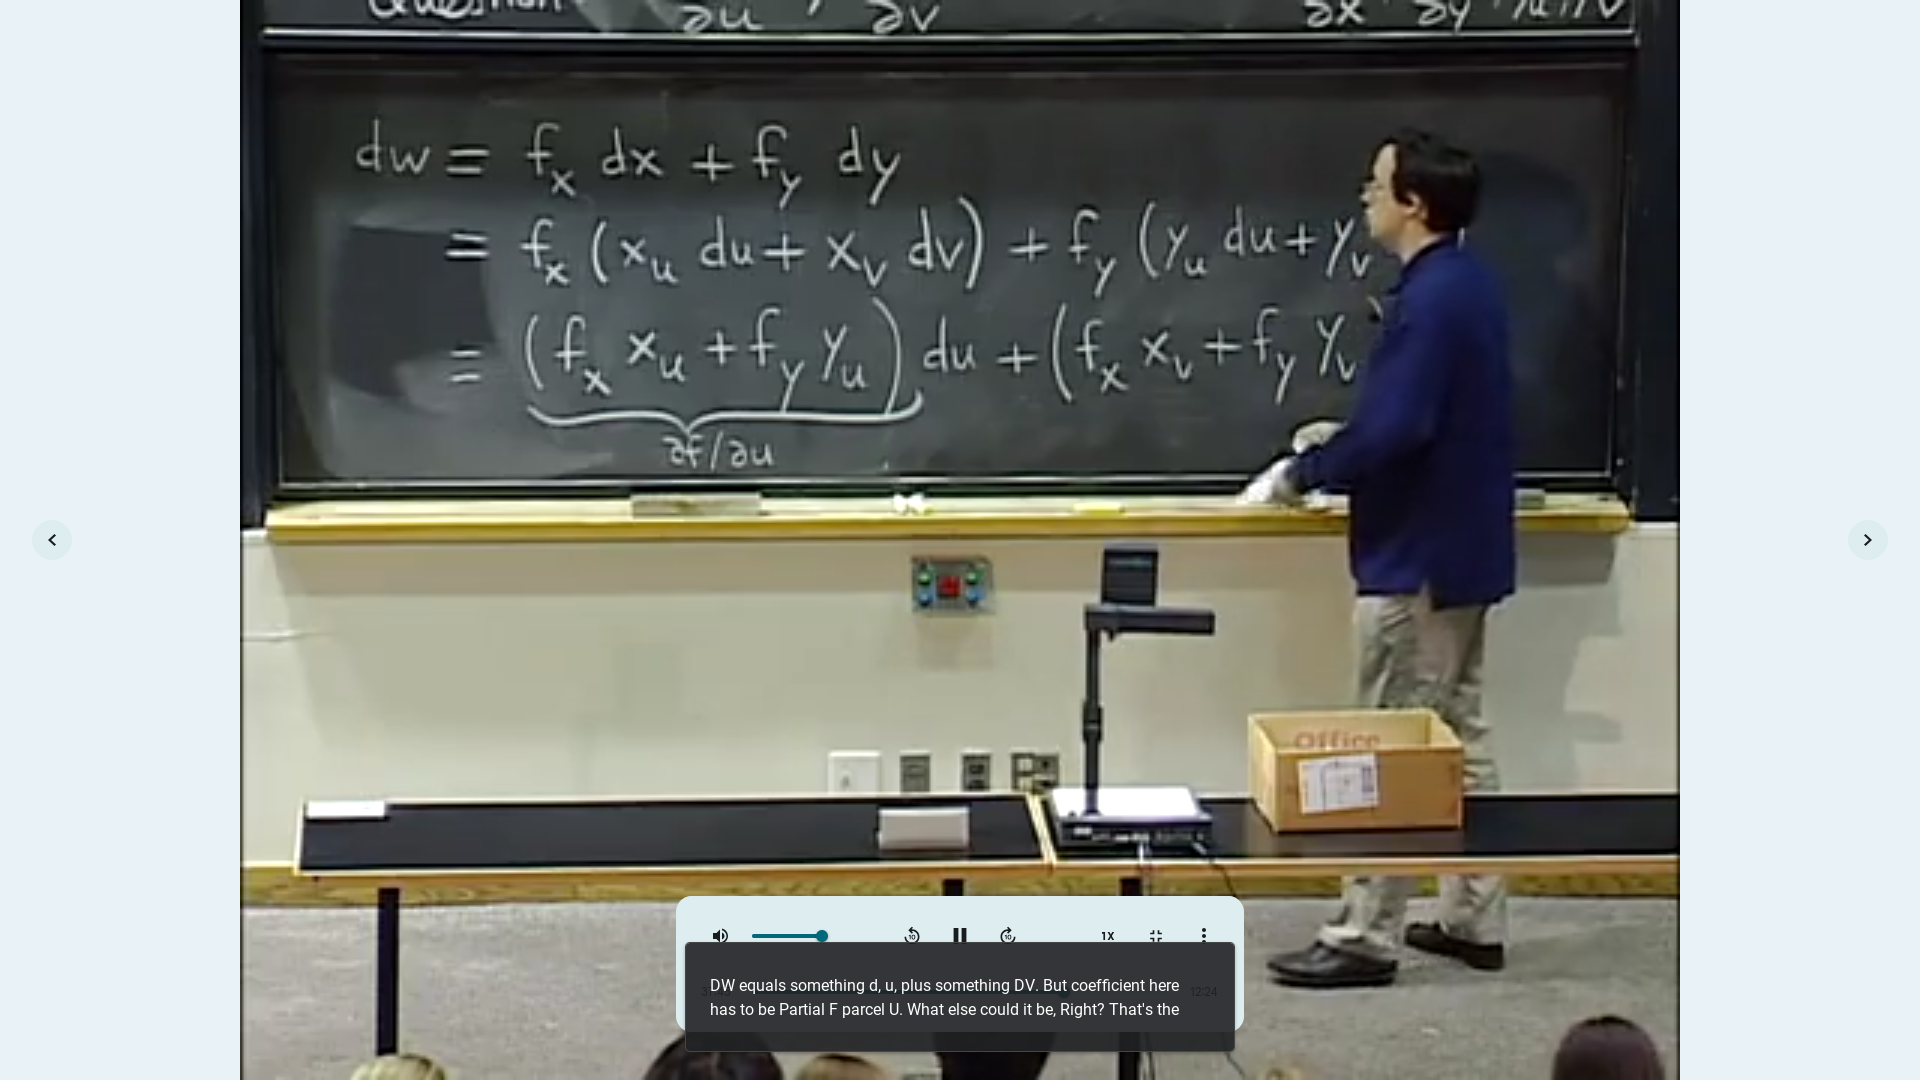 Question ∂u , ∂v ∂x ∂y
dw = f_x dx + f_y dy
= f_x (x_u du + x_v dv) + f_y (y_u du + y_v
= (f_x x_u + f_y y_u) du + (f_x x_v + f_y y_v
∂f/∂u
Office
10
10
1X
12:24
DW equals something d, u, plus something DV. But coefficient here
has to be Partial F parcel U. What else could it be, Right? That's the